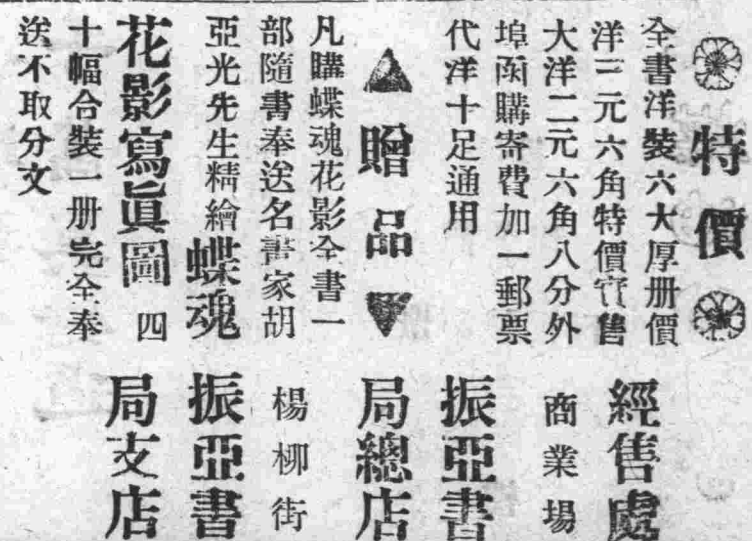 特價
全書洋裝六大厚册價
洋三元六角特價實售
大洋二元六角八分外
埠函購寄費加一郵票
代洋十足通用
▲贈品▼
凡購蝶魂花影全書一
部隨書奉送名畫家胡
亞光先生精繪蝶魂
花影寫眞圖四
十幅合裝一册完全奉
送不取分文
經售處
商業場
振亞書
局總店
楊柳街
振亞書
局支店